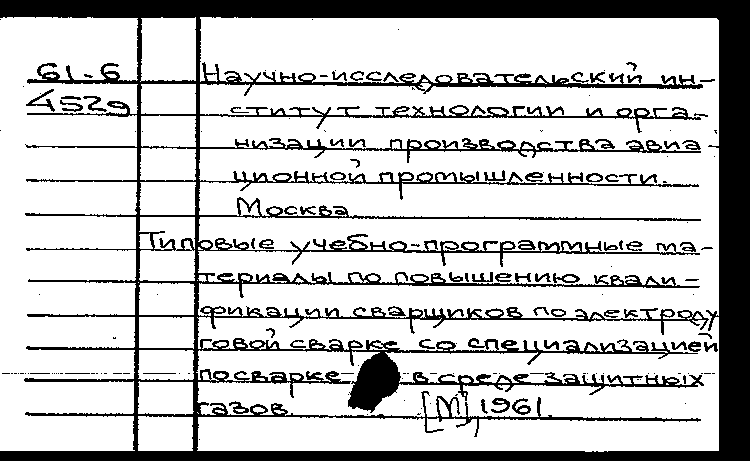 61-6 Научно-исследовательский ин-
4529 ститут технологии и орга-
низации производства авиа-
ционной промышленности.
Москва.
Типовые учебно-программные ма-
териалы по повышению квали-
фикации сварщиков по электроду
говой сварке со специализацией
по сварке в среде защитных
газов. [М], 1961.